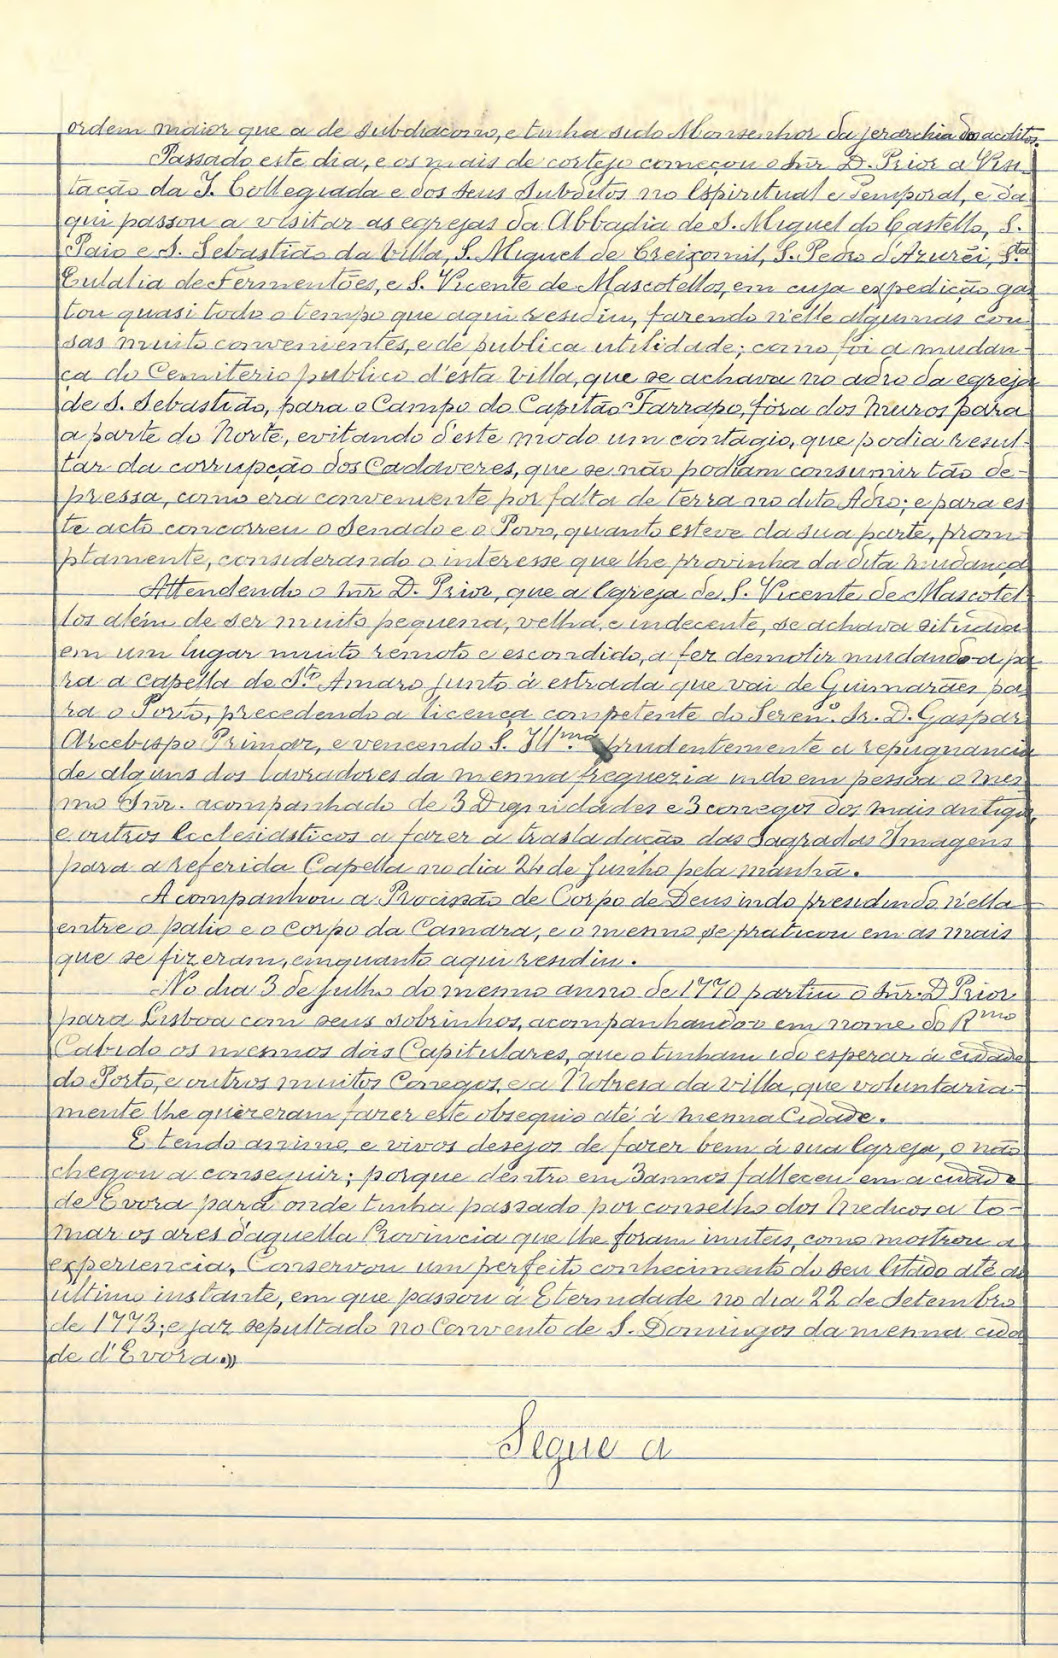 ordem maior que a de subdiacono, e tinha sido Monsenhor da jerarchia dos acolitos.
Passado este dia, e os mais de cortejo começou o Snr. D. Prior a Visi-
tação da I. Collegiada e dos seus subditos no Espiritual e Temporal, e da-
qui passou a visitar as egrejas da Abbadia de S. Miguel do Castello, S.
Paio e S. Sebastião da Villa, S. Miguel de Creixomil, S. Pedro d'Azurêi, S.ta
Eulalia de Fermentões, e S. Vicente de Mascotellos, em cuja expedição gas
tou quasi todo o tempo que aqui residiu, fazendo n'elle algumas cou-
sas muito convenientes, e de publica utilidade; como foi a mudan-
ça do Cemiterio publico d'esta villa, que se achava no adro da egreja
de S. Sebastião, para o Campo do Capitão Farrapo, fóra dos Muros para
a parte do Norte, evitando d'este modo um contagio, que podia resul-
tar da corrupção dos Cadaveres, que se não podiam consumir tão de-
pressa, como era conveniente por falta de terra no dito Adro; e para es-
te acto concorreu o Senado e o Povo, quanto esteve da sua parte, prom-
ptamente, considerando o interesse que lhe provinha da dita mudança.
Attendendo o Snr. D. Prior, que a Egreja de S. Vicente de Mascotel-
los além de ser muito pequena, velha, e indecente, se achava situada
em um lugar muito remoto e escondido, a fez demolir mudando-a pa-
ra a capella de Sto Amaro junto á estrada que vai de Guimarães pa-
ra o Porto, precedendo a licença competente do Seren.º Sr. D. Gaspar
Arcebispo Primaz, e vencendo S. Ill.ma prudentemente a repugnancia
de alguns dos lavradores da mesma freguezia indo em pessoa o mes-
mo Snr. acompanhado de 3 Dignidades e 3 conegos dos mais antigos,
e outros Ecclesiasticos a fazer a trasladação das Sagradas Imagens
para a referida Capella no dia 24 de Junho pela manhã.
Acompanhou a Procissão de Corpo de Deus indo presidindo n'ella
entre o palio e o corpo da Camara, e o mesmo se praticou em as mais
que se fizeram, emquanto aqui residiu.
No dia 3 de Julho do mesmo anno de 1770 partiu o Snr. D. Prior
para Lisboa com seus sobrinhos, acompanhando-o em nome do Rmo
Cabido os mesmos dois Capitulares, que o tinham ido esperar á cidade
do Porto, e outros muitos Conegos, e a Nobresa da villa, que voluntaria-
mente lhe quizeram fazer este obsequio até á mesma Cidade.
E tendo animo, e vivos desejos de fazer bem á sua Egreja, o não
chegou a conseguir; porque dentro em 3 annos falleceu em a cidade
de Evora para onde tinha passado por conselho dos Medicos a to-
mar os ares d'aquella Provincia que lhe foram inuteis, como mostrou a
experiencia. Conservou um perfeito conhecimento do seu Estado até ao
ultimo instante, em que passou á Eternidade no dia 22 de Setembro
de 1773; e jaz sepultado no Convento de S. Domingos da mesma cida
de d'Evora.»
Segue a